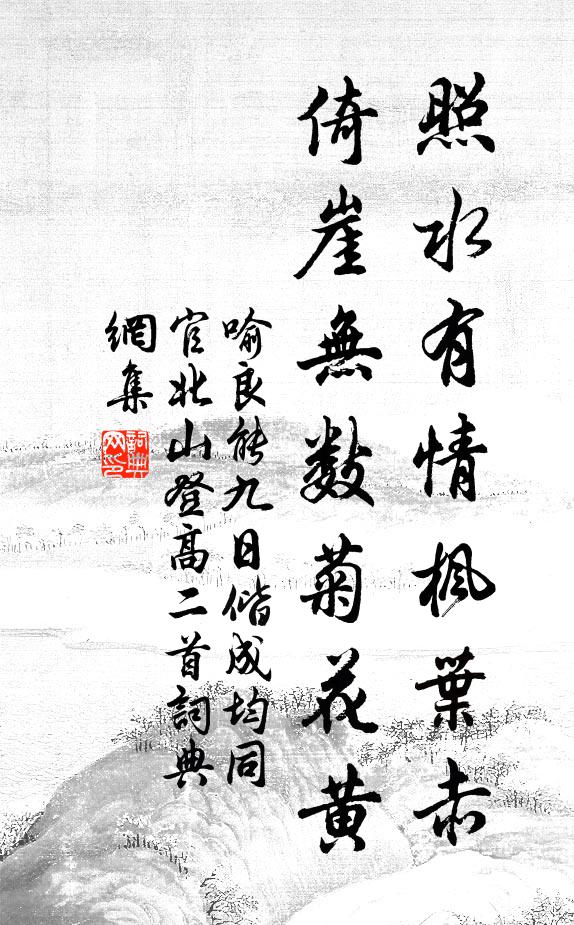 照水有情楓葉赤
倚崖無數菊花黄
喻良能九日偕成均同
官北山登高二首詞典
網集
詞典網印